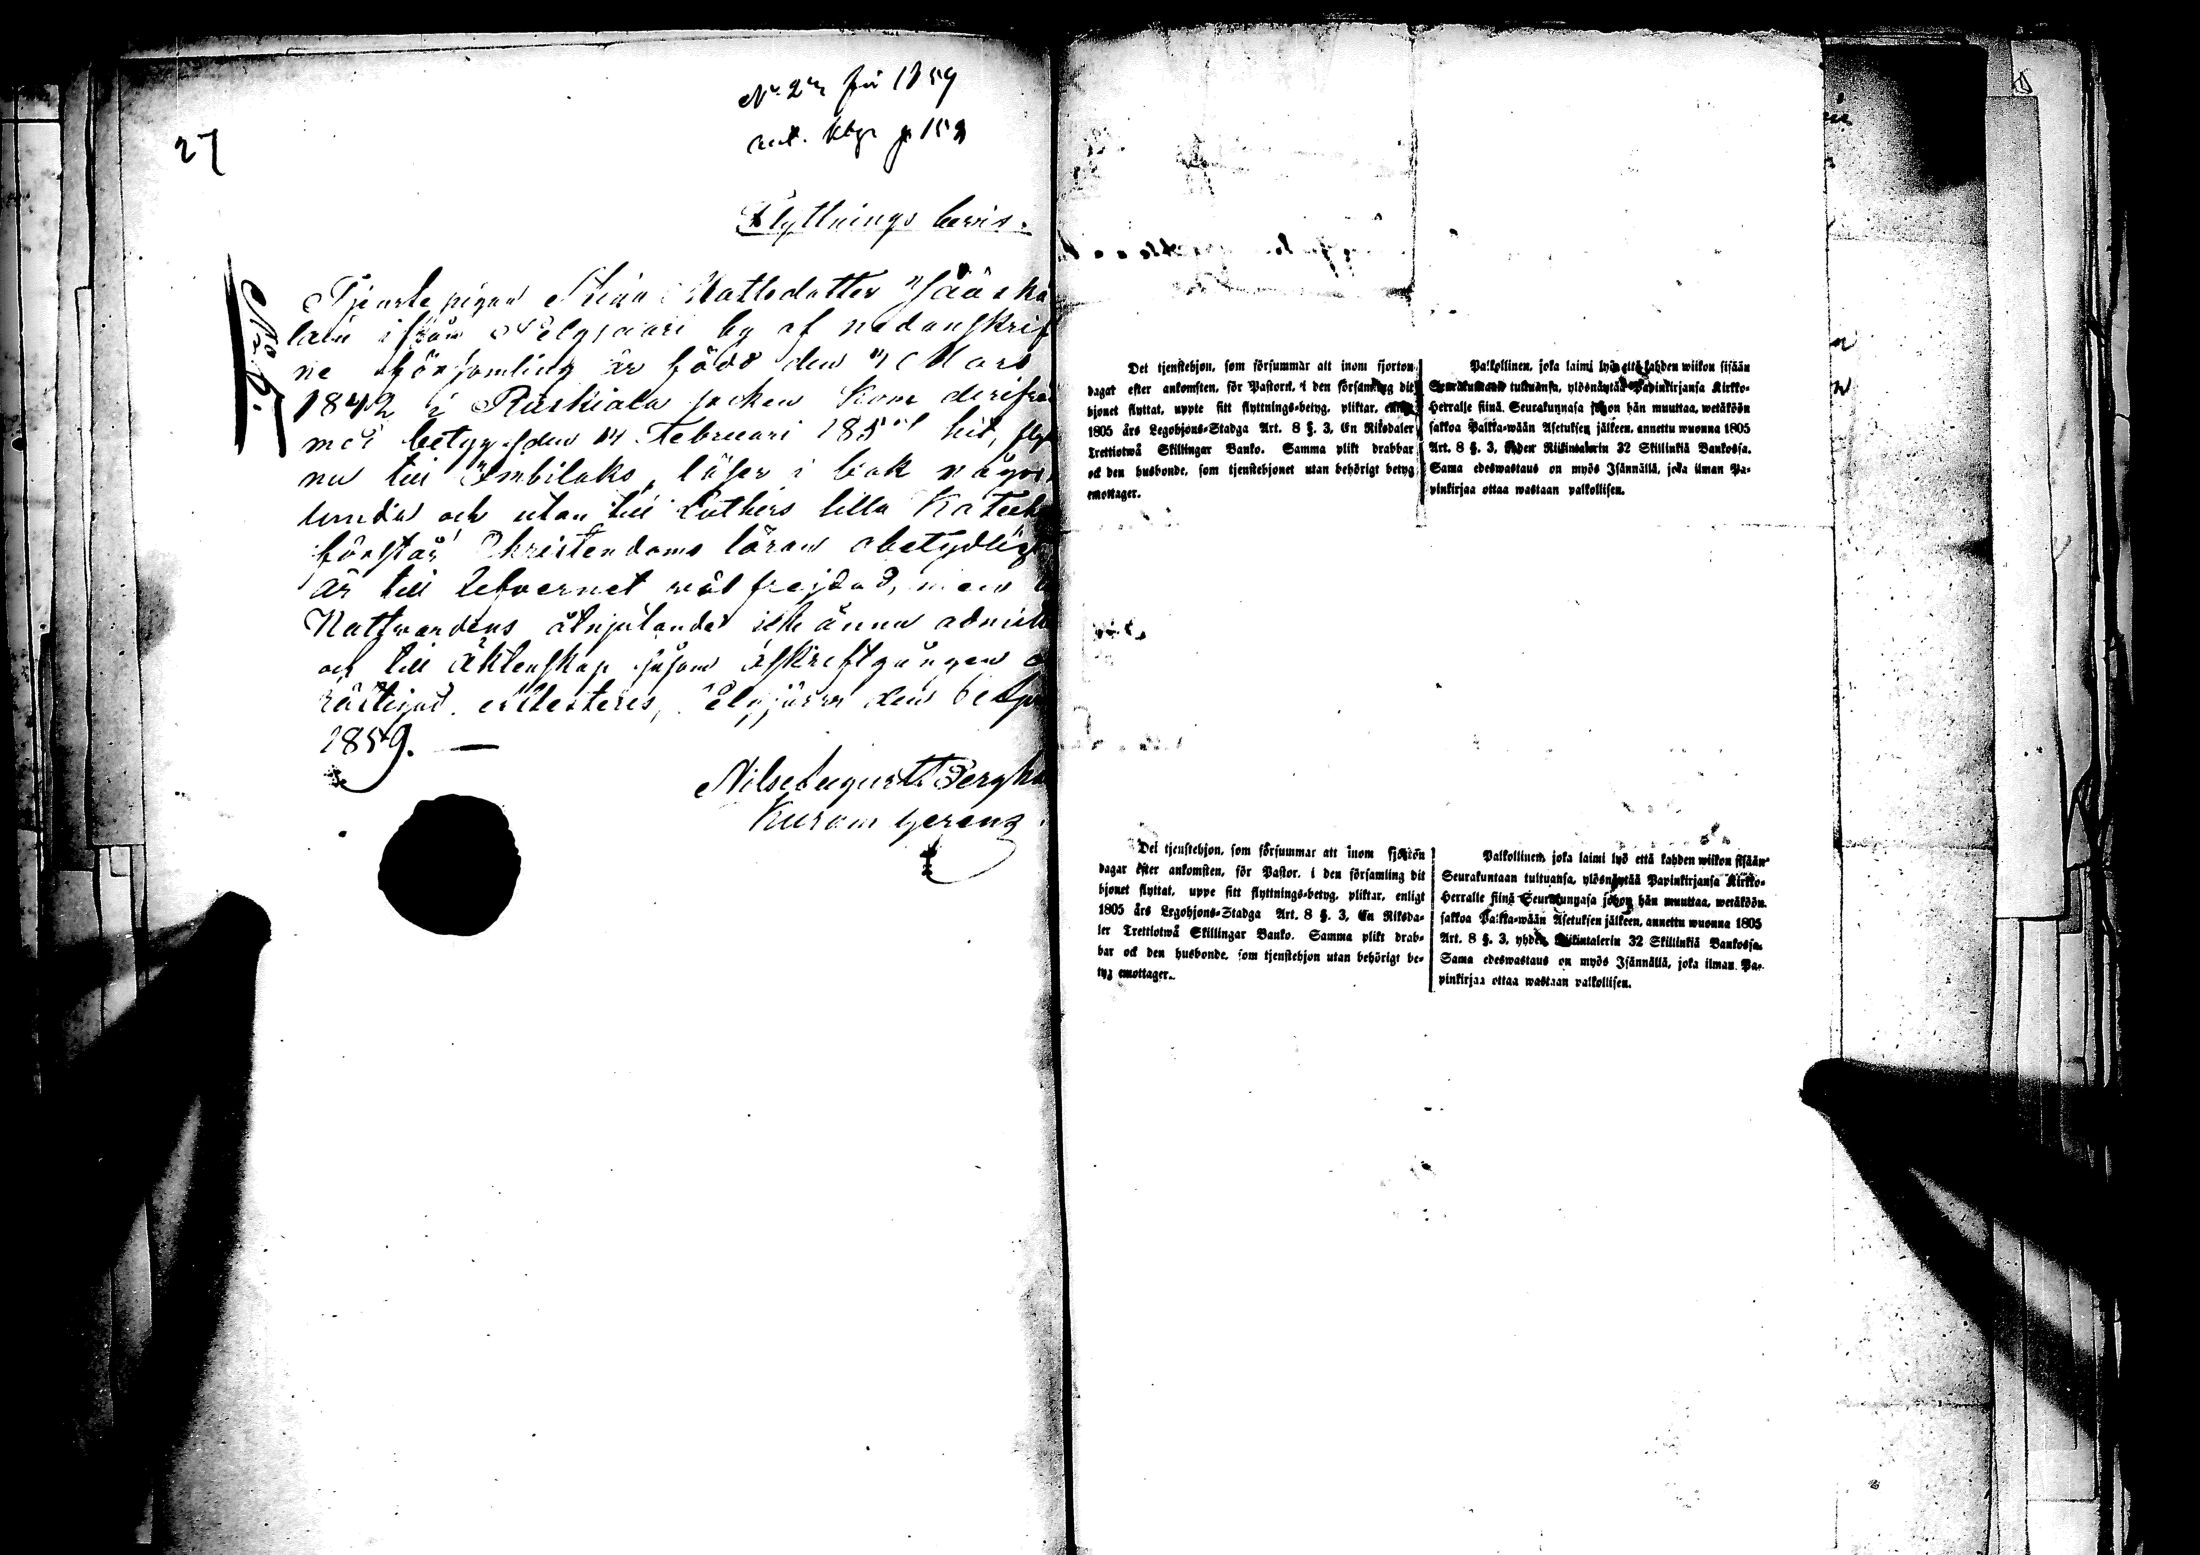 27
för 1859
Flyttnings bevis.
No 6.
Tjenste pigan Stina Mattsdotter Jääska
lain ifrån by af nedanskrif
ne församling är född den Mars
1842 i Ruskiala socken kom derifrå
med betyg den Februari hit, fly
nu till Imbilaks, läser i bok någor
lunda och utan till Luthers lilla Katech
förstår Christendoms läran obetydligt
är till lefvernet väl frejdad, men
Nattvardens åtnjutande icke ännu admitt
och till äktenskap såsom oskriftgången o
rättigad. attesteres, den 6
1859. —
Nils August Bergh
Kuram gerens
Det tjenstehjon, som försummar att inom fjorton
dagar efter ankomsten, för Pastorn, i den församling dit
hjonet flyttat, uppte sitt flyttnings=betyg, pliktar, enligt
1805 års Legohjons=Stadga Art. 8 §. 3, En Riksdaler
Trettiotwå Skillingar Banko. Samma plikt drabbar
ock den husbonde, som tjenstehjonet utan behörigt betyg
emottager.
Palkollinen, joka laimi lyö että kahden wiikon sisään
Seurakuntaan tultuansa, ylösnäytää Papinkirjansa Kirkko=
Herralle siinä Seurakunnasa johon hän muuttaa, wetäköön
sakkoa Palkka=wään Asetuksen jälkeen, annettu wuonna 1805
Art. 8 §. 3, yhden Riikintalerin 32 Skillinkiä Bankossa.
Sama edeswastaus on myös Isännällä, joka ilman Pa=
pinkirjaa ottaa wastaan palkollisen.
Det tjenstehjon, som försummar att inom fjorton
dagar efter ankomsten, för Pastor, i den församling dit
hjonet flyttat, uppe sitt flyttnings=betyg, pliktar, enligt
1805 års Legohjons=Stadga Art. 8 §. 3, En Riksda=
ler Trettiotwå Skillingar Banko. Samma plikt drab=
bar ock den husbonde, som tjenstehjon utan behörigt be=
tyg emottager.
Palkollinen, joka laimi lyö että kahden wiikon sisään
Seurakuntaan tultuansa, ylösnäytää Papinkirjansa Kirkko=
Herralle siinä Seurakunnasa johon hän muuttaa, wetäköön
sakkoa Palkka=wään Asetuksen jälkeen, annettu wuonna 1805
Art. 8 §. 3, yhden Riikintalerin 32 Skillinkiä Bankossa.
Sama edeswastaus on myös Isännällä, joka ilman Pa=
pinkirjaa ottaa wastaan palkollisen.